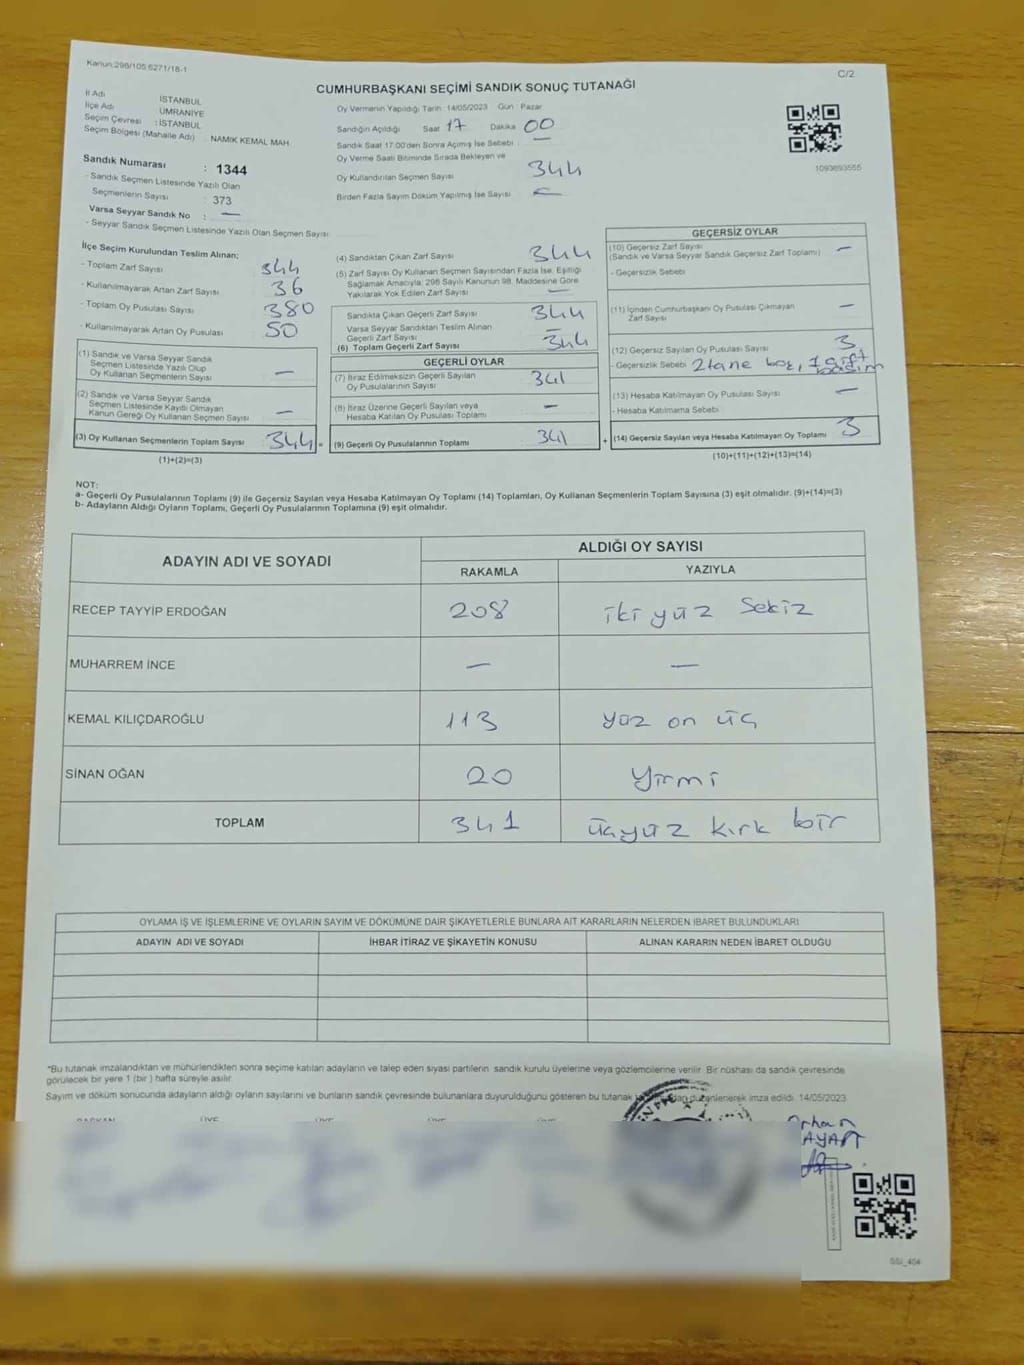 Kanun:298/105 6271/18-1
C/2
CUMHURBAŞKANI SEÇİMİ SANDIK SONUÇ TUTANAĞI
İl Adı İSTANBUL
İlçe Adı ÜMRANİYE
Seçim Çevresi : İSTANBUL
Seçim Bölgesi (Mahalle Adı) NAMIK KEMAL MAH.
Oy Vermenin Yapıldığı Tarih : 14/05/2023 Gün : Pazar
Sandığın Açıldığı Saat 17 Dakika 00
Sandık Saat 17:00'den Sonra Açılmış İse Sebebi : —
Oy Verme Saati Bitiminde Sırada Bekleyen ve
Oy Kullandırılan Seçmen Sayısı 344
Birden Fazla Sayım Döküm Yapılmış İse Sayısı
1093693555
Sandık Numarası : 1344
- Sandık Seçmen Listesinde Yazılı Olan
Seçmenlerin Sayısı : 373
Varsa Seyyar Sandık No : —
- Seyyar Sandık Seçmen Listesinde Yazılı Olan Seçmen Sayısı
İlçe Seçim Kurulundan Teslim Alınan;
- Toplam Zarf Sayısı 344
- Kullanılmayarak Artan Zarf Sayısı 36
- Toplam Oy Pusulası Sayısı 380
- Kullanılmayarak Artan Oy Pusulası 50
(1) Sandık ve Varsa Seyyar Sandık
Seçmen Listesinde Yazılı Olup
Oy Kullanan Seçmenlerin Sayısı —
(2) Sandık ve Varsa Seyyar Sandık
Seçmen Listesinde Kayıtlı Olmayan
Kanun Gereği Oy Kullanan Seçmen Sayısı —
(3) Oy Kullanan Seçmenlerin Toplam Sayısı 344 =
(1)+(2)=(3)
(4) Sandıktan Çıkan Zarf Sayısı 344
(5) Zarf Sayısı Oy Kullanan Seçmen Sayısından Fazla İse, Eşitliği
Sağlamak Amacıyla; 298 Sayılı Kanunun 98. Maddesine Göre
Yakılarak Yok Edilen Zarf Sayısı —
Sandıkta Çıkan Geçerli Zarf Sayısı 344
Varsa Seyyar Sandıktan Teslim Alınan
Geçerli Zarf Sayısı —
(6) Toplam Geçerli Zarf Sayısı 344
GEÇERLİ OYLAR
(7) İtiraz Edilmeksizin Geçerli Sayılan
Oy Pusulalarının Sayısı 341
(8) İtiraz Üzerine Geçerli Sayılan veya
Hesaba Katılan Oy Pusulası Toplamı —
(9) Geçerli Oy Pusulalarının Toplamı 341 +
GEÇERSİZ OYLAR
(10) Geçersiz Zarf Sayısı —
(Sandık ve Varsa Seyyar Sandık Geçersiz Zarf Toplamı)
- Geçersizlik Sebebi
(11) İçinden Cumhurbaşkanı Oy Pusulası Çıkmayan
Zarf Sayısı —
(12) Geçersiz Sayılan Oy Pusulası Sayısı 3
- Geçersizlik Sebebi 2 tane boş, 1 çift
basım
(13) Hesaba Katılmayan Oy Pusulası Sayısı —
- Hesaba Katılmama Sebebi
(14) Geçersiz Sayılan veya Hesaba Katılmayan Oy Toplamı 3
(10)+(11)+(12)+(13)=(14)
NOT:
a- Geçerli Oy Pusulalarının Toplamı (9) ile Geçersiz Sayılan veya Hesaba Katılmayan Oy Toplamı (14) Toplamları, Oy Kullanan Seçmenlerin Toplam Sayısına (3) eşit olmalıdır. (9)+(14)=(3)
b- Adayların Aldığı Oyların Toplamı, Geçerli Oy Pusulalarının Toplamına (9) eşit olmalıdır.
ADAYIN ADI VE SOYADI
ALDIĞI OY SAYISI
RAKAMLA YAZIYLA
RECEP TAYYİP ERDOĞAN 208 iki yüz sekiz
MUHARREM İNCE — —
KEMAL KILIÇDAROĞLU 113 yüz on üç
SİNAN OĞAN 20 yirmi
TOPLAM 341 üçyüz kırk bir
OYLAMA İŞ VE İŞLEMLERİNE VE OYLARIN SAYIM VE DÖKÜMÜNE DAİR ŞİKAYETLERLE BUNLARA AİT KARARLARIN NELERDEN İBARET BULUNDUKLARI
ADAYIN ADI VE SOYADI İHBAR İTİRAZ VE ŞİKAYETİN KONUSU ALINAN KARARIN NEDEN İBARET OLDUĞU
*Bu tutanak imzalandıktan ve mühürlendikten sonra seçime katılan adayların ve talep eden siyasi partilerin sandık kurulu üyelerine veya gözlemcilerine verilir. Bir nüshası da sandık çevresinde
görülecek bir yere 1 (bir ) hafta süreyle asılır.
Sayım ve döküm sonucunda adayların aldığı oyların sayılarını ve bunların sandık çevresinde bulunanlara duyurulduğunu gösteren bu tutanak düzenlenerek imza edildi. 14/05/2023
BAŞKAN ÜYE ÜYE ÜYE ÜYE
Orhan